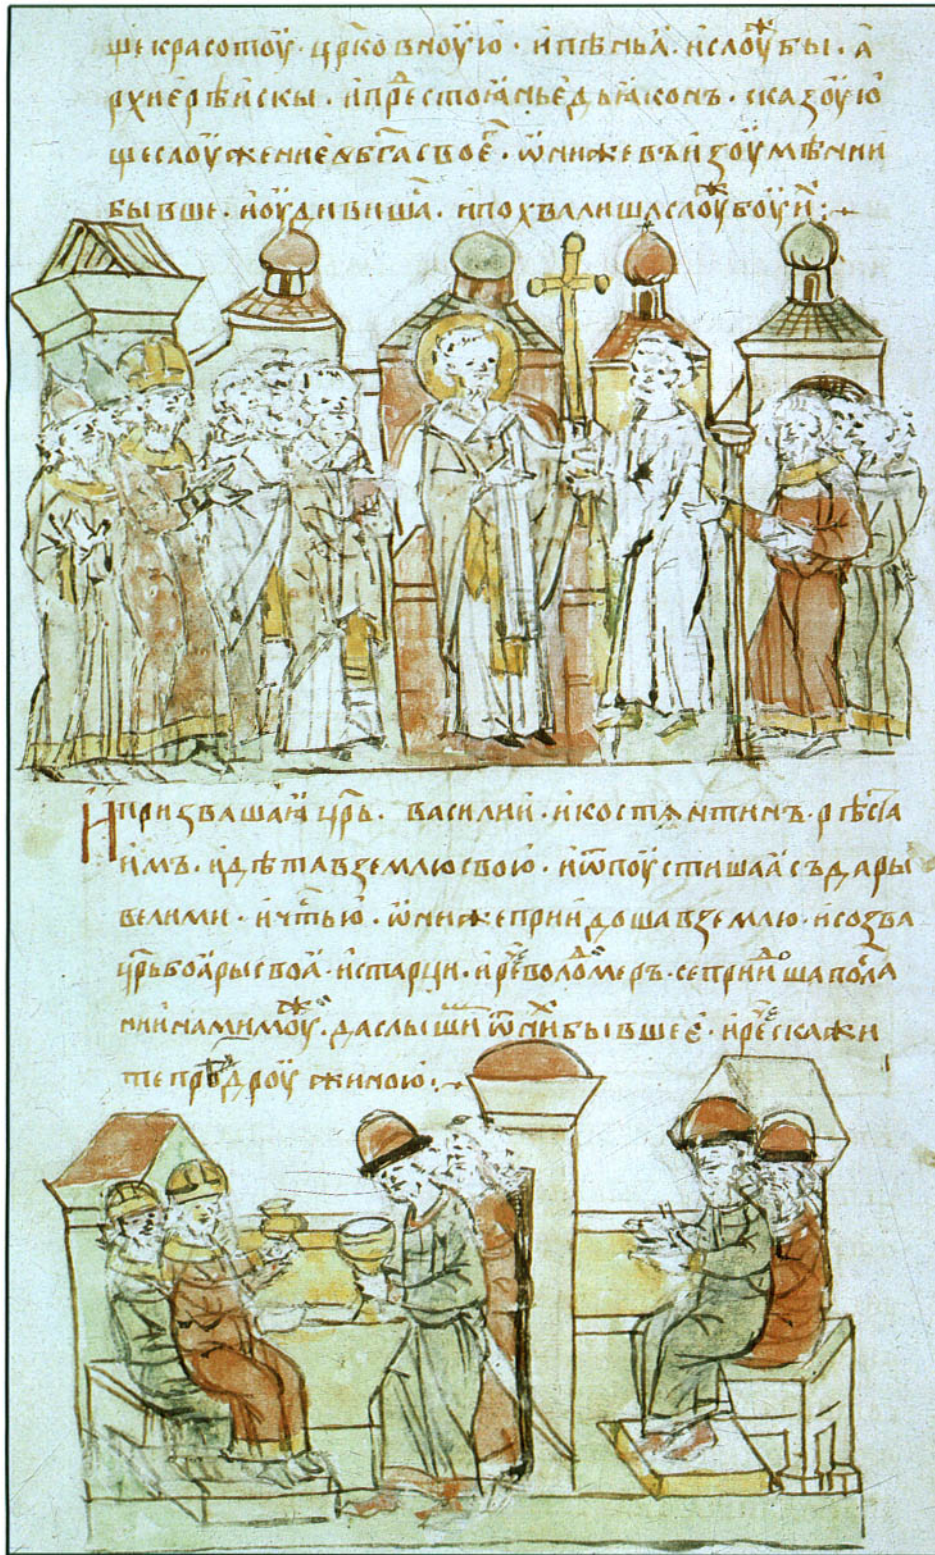 ще красотоу · црк҃овноую · и пѣньꙗ · и слоуж҃бы · а
рхиерѣискы · и прⷣестоꙗньє дьꙗконъ · сказоую
ще слоужениє б҃га своєⷢ҇ · ѡни же въ изоумѣнии
бывше · и оудивишаⷭ҇ · и похвалиша слоуⷤбоу иⷯ :·
И призваша ꙗ цр҃ь · василии · и костѧнтинъ · рѣста
имъ · идѣта в землю свою · и ѿпоустиша ꙗ съ дары
велими · и чⷭ҇тью · ѡни же приидоша в землю · и созва
цр҃ь боꙗры своꙗ · и старци · и рⷱ҇е володⷣмеръ · се приидⷪ҇ша посла
нии нами моуⷤ · да слышиⷨ ѿ ниⷯ бывшеє · и рⷱ҇е скажи
те преⷣ дроужиною :·